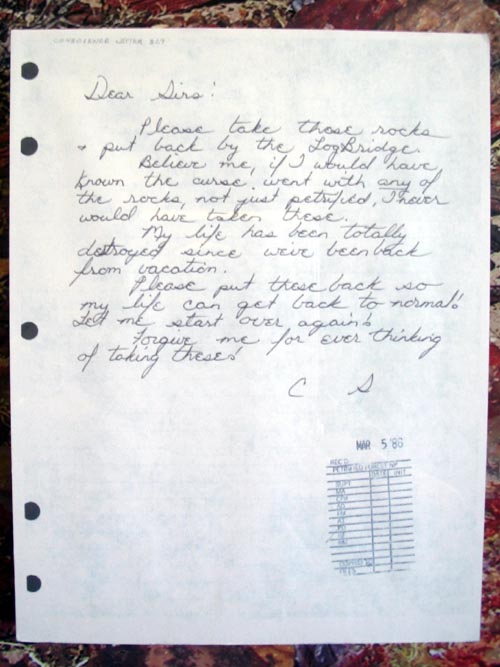 CONSCIENCE LETTER 307
Dear Sirs!
Please take those rocks
+ put back by the LogBridge.
Believe me, if I would have
known the curse went with any of
the rocks, not just petrified, I never
would have taken these.
My life has been totally
detroyed since we've been back
from vacation.
Please put these back so
my life can get back to normal!
Let me start over again!
Forgive me for ever thinking
of taking these!
C S
MAR 5 '86
REC'D
PETRIFIED FOREST NP
DATE INIT
SUPT